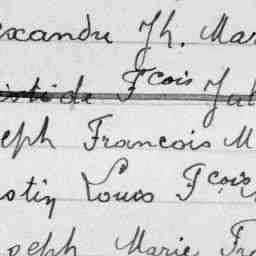 exandre Jh. Mar
istide Fcois Jul
eph Francois M
stin Louis Fcois
oseph Marie Fr